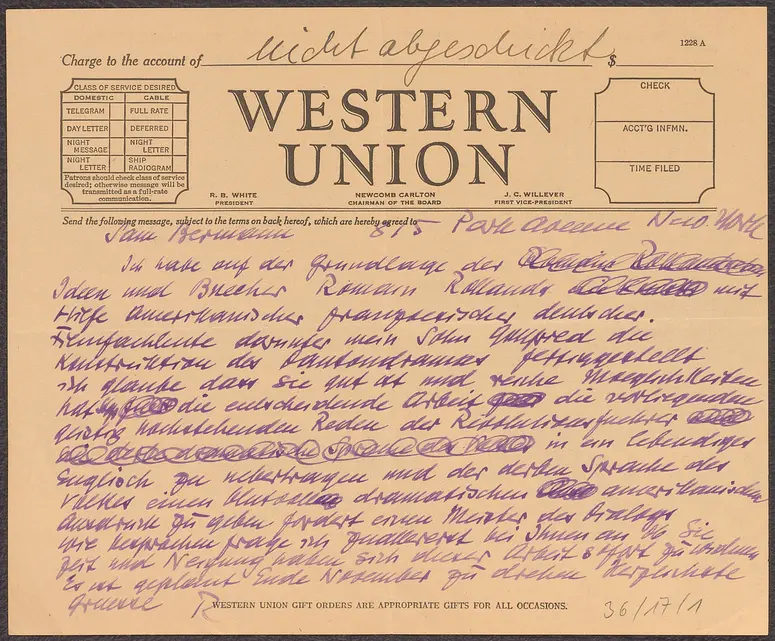 nicht abgeschickt
1228 A
Charge to the account of $
CLASS OF SERVICE DESIRED
DOMESTIC CABLE
TELEGRAM FULL RATE
DAY LETTER DEFERRED
NIGHT MESSAGE NIGHT LETTER
NIGHT LETTER SHIP RADIOGRAM
Patrons should check class of service
desired; otherwise message will be
transmitted as a full-rate
communication.
WESTERN
UNION
R. B. WHITE
PRESIDENT
NEWCOMB CARLTON
CHAIRMAN OF THE BOARD
J. C. WILLEVER
FIRST VICE-PRESIDENT
CHECK
ACCT'G INFMN.
TIME FILED
Send the following message, subject to the terms on back hereof, which are hereby agreed to
Sam Bermann 875 Park Avenue New York
Ich habe auf der Grundlage der
Ideen und Buecher Romain Rollands mit
Hilfe amerikanischer franzoesischer deutscher
Filmfachleute darunter mein Sohn Gottfried die
Konstruktion des Dantondramas fertiggestellt
ich glaube dass sie gut ist und reiche Moeglichkeiten
hat die entscheidende Arbeit die vorliegenden
geistig hochstehenden Reden der Revolutionsfuehrer
in ein lebendiges
Englisch zu uebertragen und der derben Sprache des
Volkes einen dramatischen amerikanischen
Ausdruck zu geben fordert einen Meister des Dialogs
wie besprochen frage ich zuallererst bei Ihnen an ob Sie
Zeit und Neigung haben sich dieser Arbeit sofort zu widmen
Es ist geplant Ende November zu drehen Herzlichste
Gruesse R
WESTERN UNION GIFT ORDERS ARE APPROPRIATE GIFTS FOR ALL OCCASIONS.
36/17/1